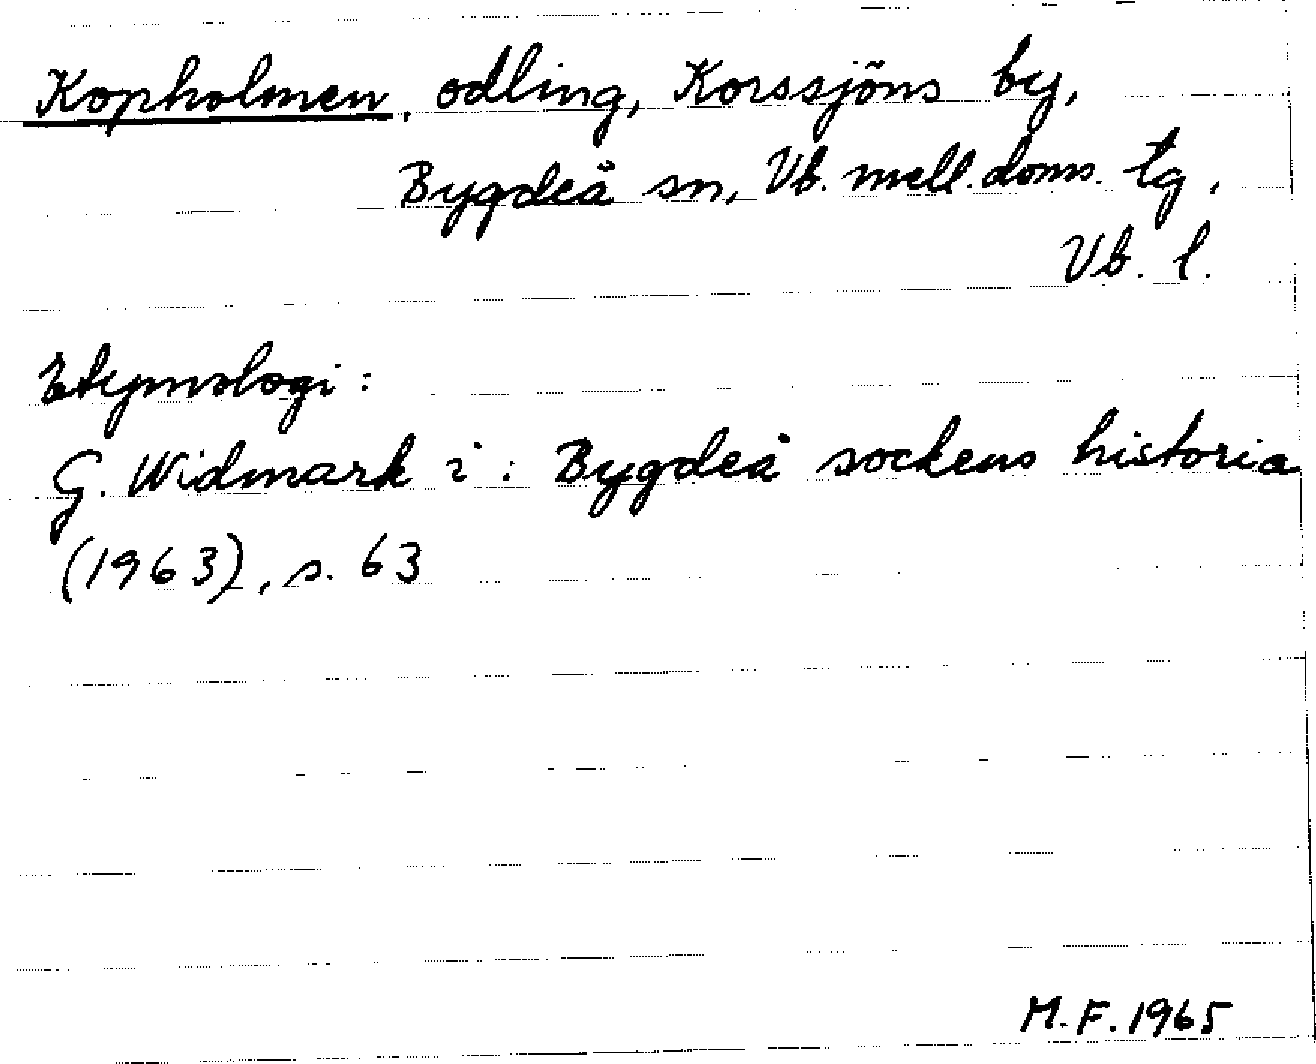 Kopholmen, odling, Korssjöns by,
Bygdeå sn, Vb. mell. doms. tg,
Vb. l.
Etymologi:
G. Widmark i: Bygdeå sockens historia
(1963), s. 63
M.F. 1965